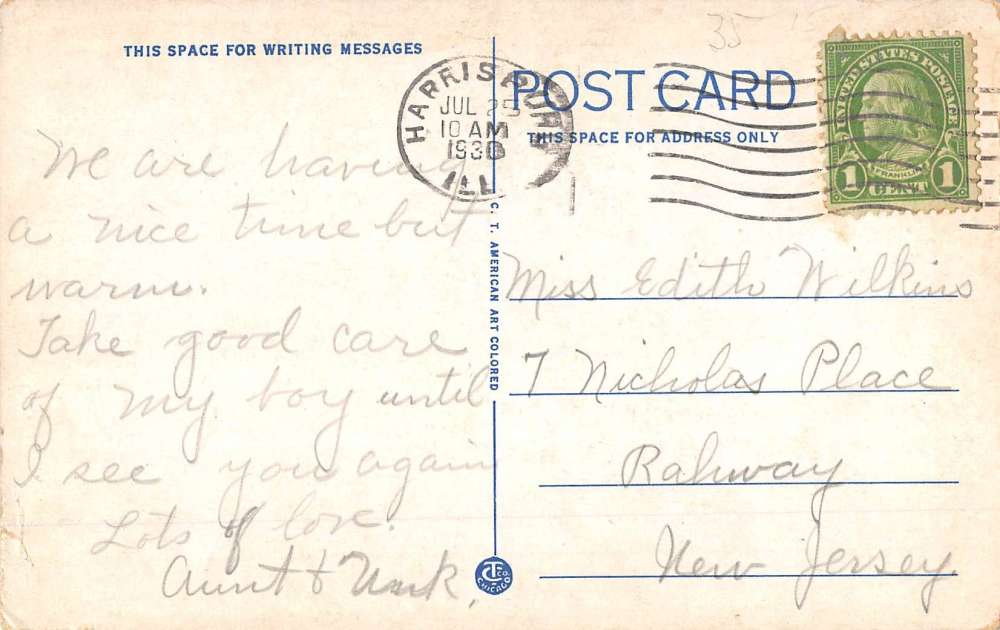 35
THIS SPACE FOR WRITING MESSAGES
We are having
a nice time but
warm.
Take good care
of my boy until
I see you again
Lots of love.
Aunt & Unk,
HARRISBURG
JUL 25
10 AM
1936
ILL.
POST CARD
THIS SPACE FOR ADDRESS ONLY
UNITED STATES POSTAGE
FRANKLIN
1 1
C. T. AMERICAN ART COLORED
Miss Edith Wilkins
7 Nicholas Place
Rahway
New Jersey
CHICAGO